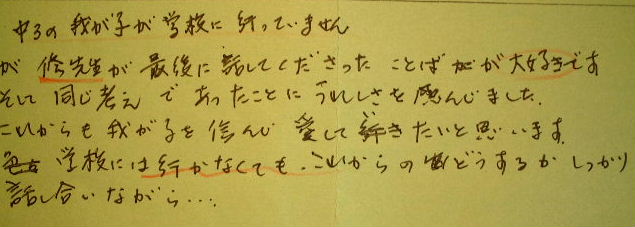 中3の我が子が学校に行っていません
が 修先生が最後に話してくださった ことばが大好きです
そして同じ考えであったことにうれしさを感じました。
これからも我が子を信じ 愛して行きたいと思います。
学校には行かなくても、これからのどうするか しっかり
話し合いながら・・・・